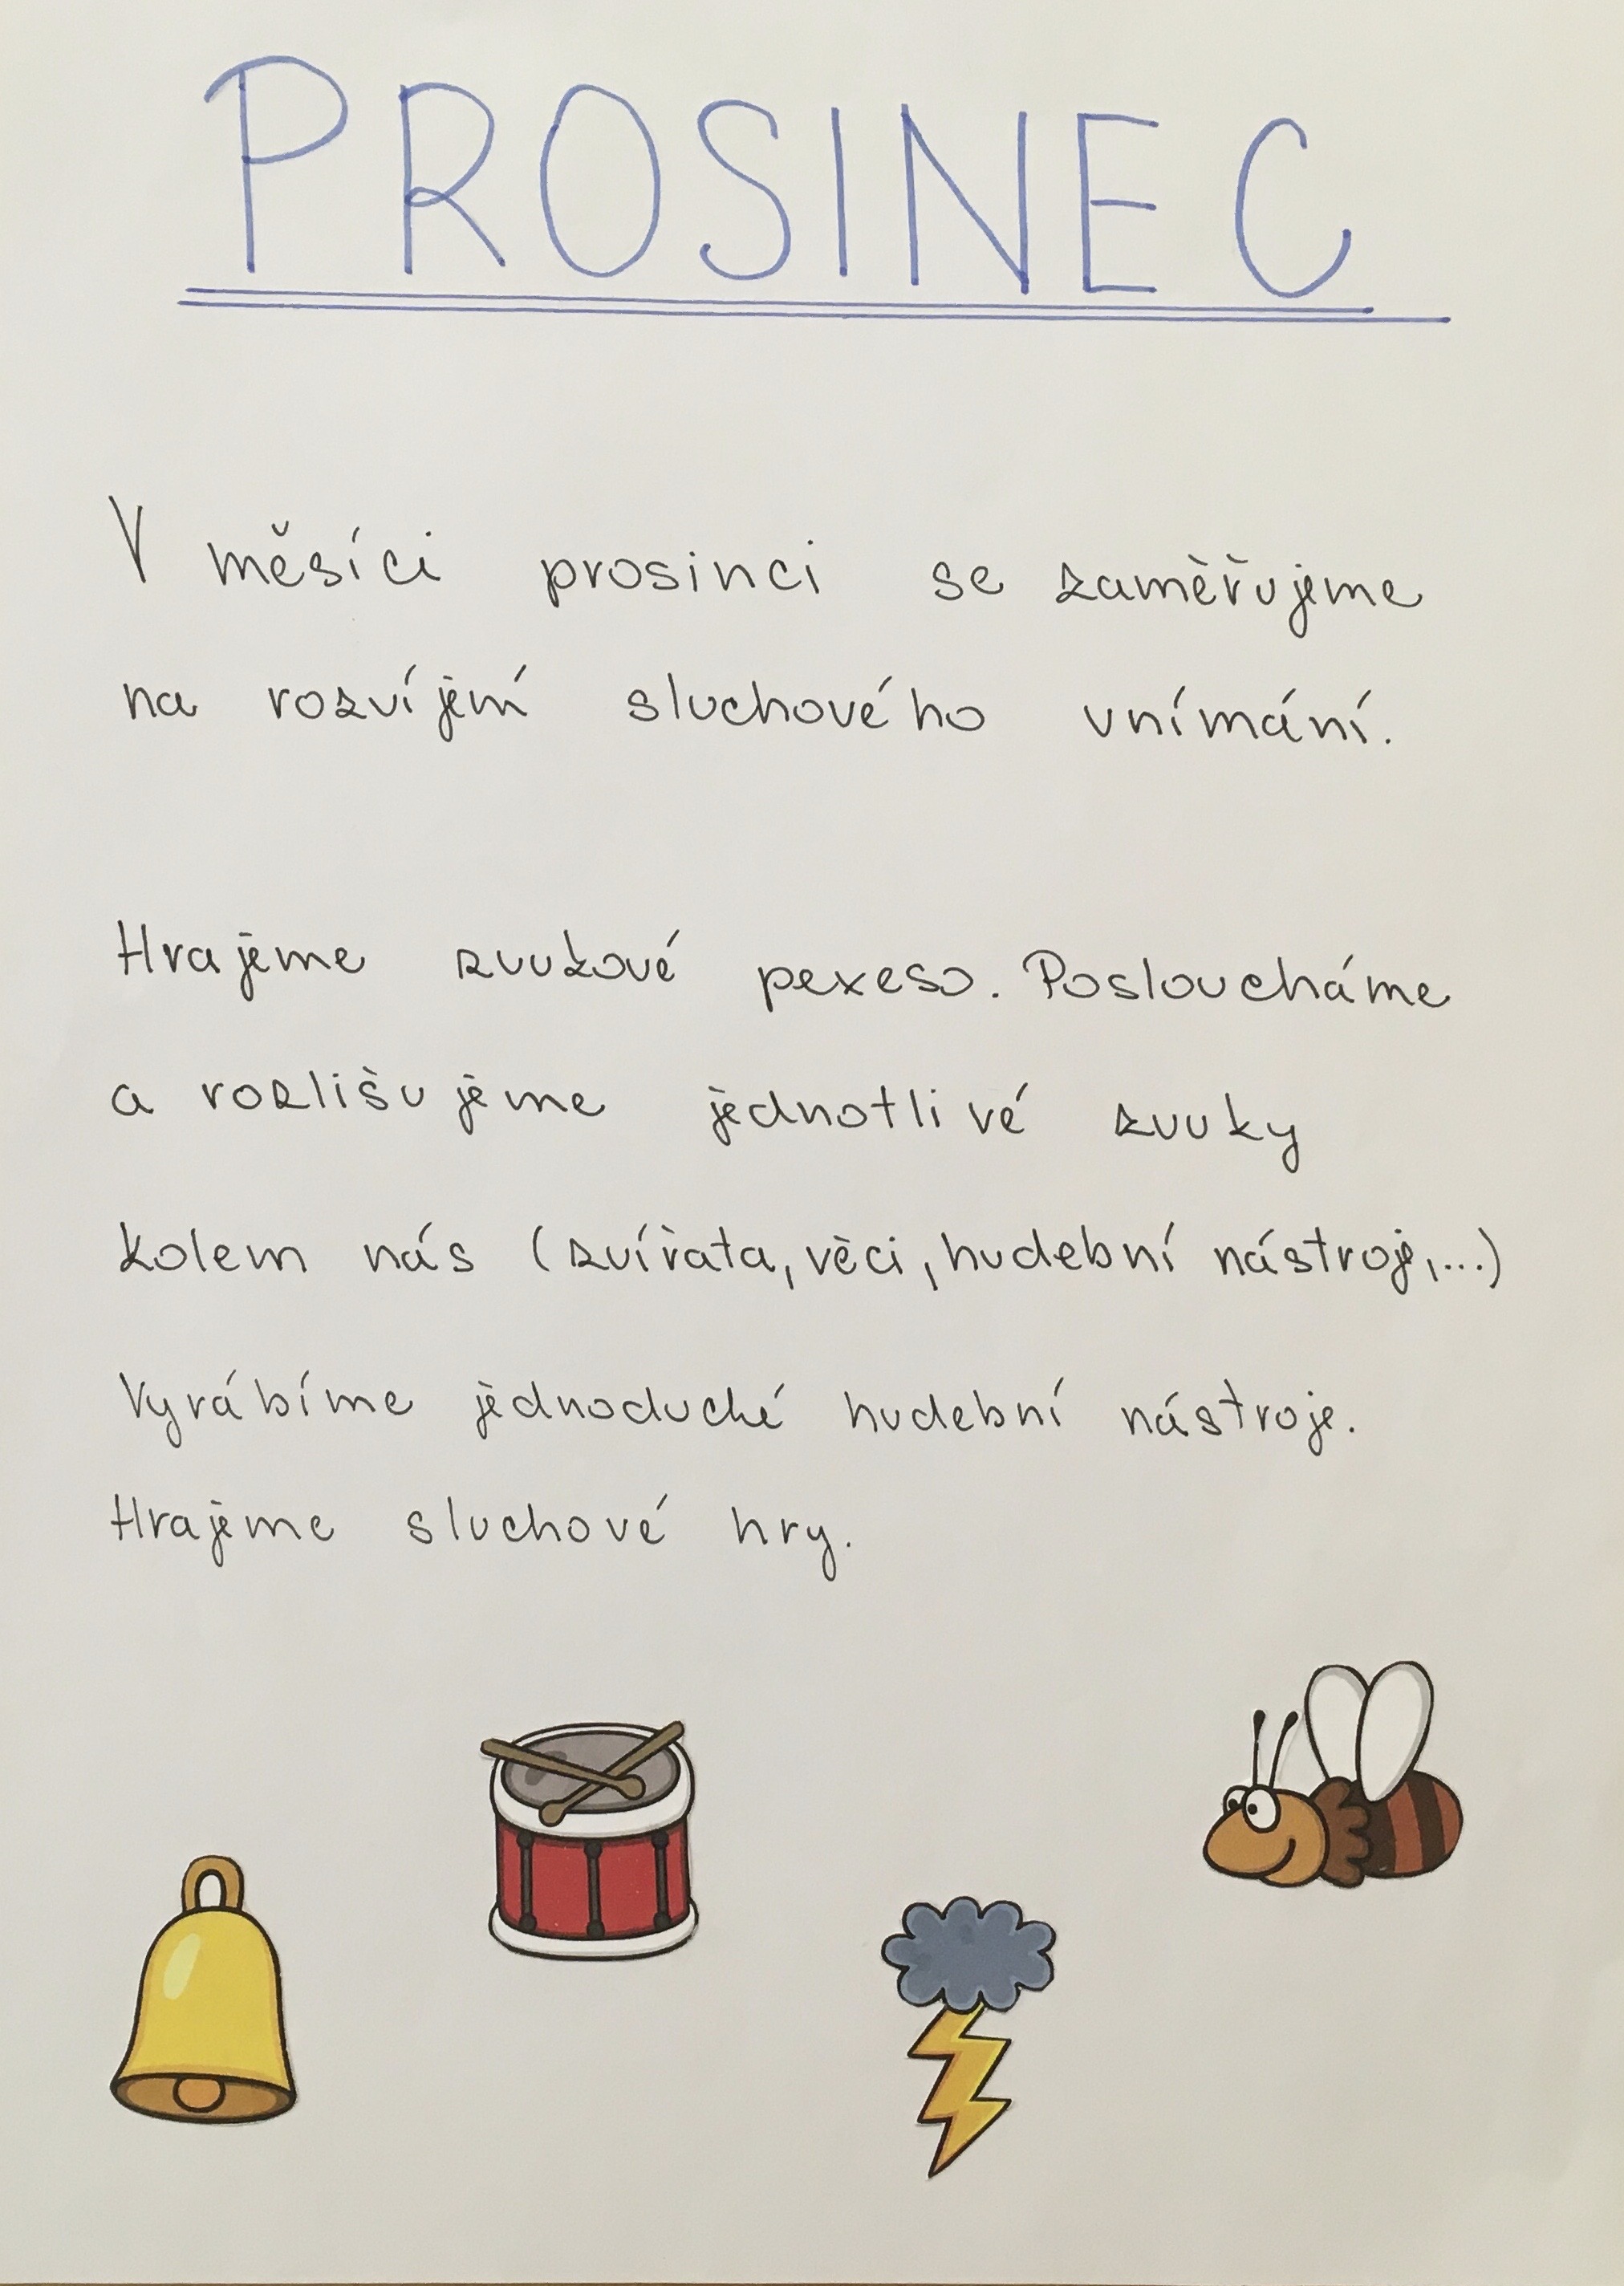 PROSINEC
V měsíci prosinci se zaměřujeme
na rozvíjení sluchového vnímání.
Hrajeme zvukové pexeso. Posloucháme
a rozlišujeme jednotlivé zvuky
kolem nás (zvířata, věci, hudební nástroje,...)
Vyrábíme jednoduché hudební nástroje.
Hrajeme sluchové hry.